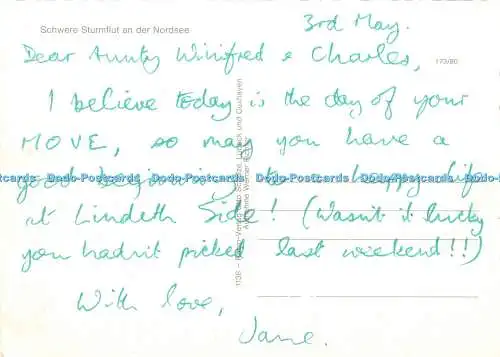 Schwere Sturmflut an der Nordsee
3rd May.
Dear Aunty Winifred & Charles,
173/80
I believe today is the day of your
MOVE, so may you have a
good beginning to a happy life
Dodo-Postcards Dodo-Postcards Dodo-Postcards Dodo-Postcards
at Lindeth Side! (Wasn't it lucky
you hadn't picked last weekend!!)
With love,
Jane.